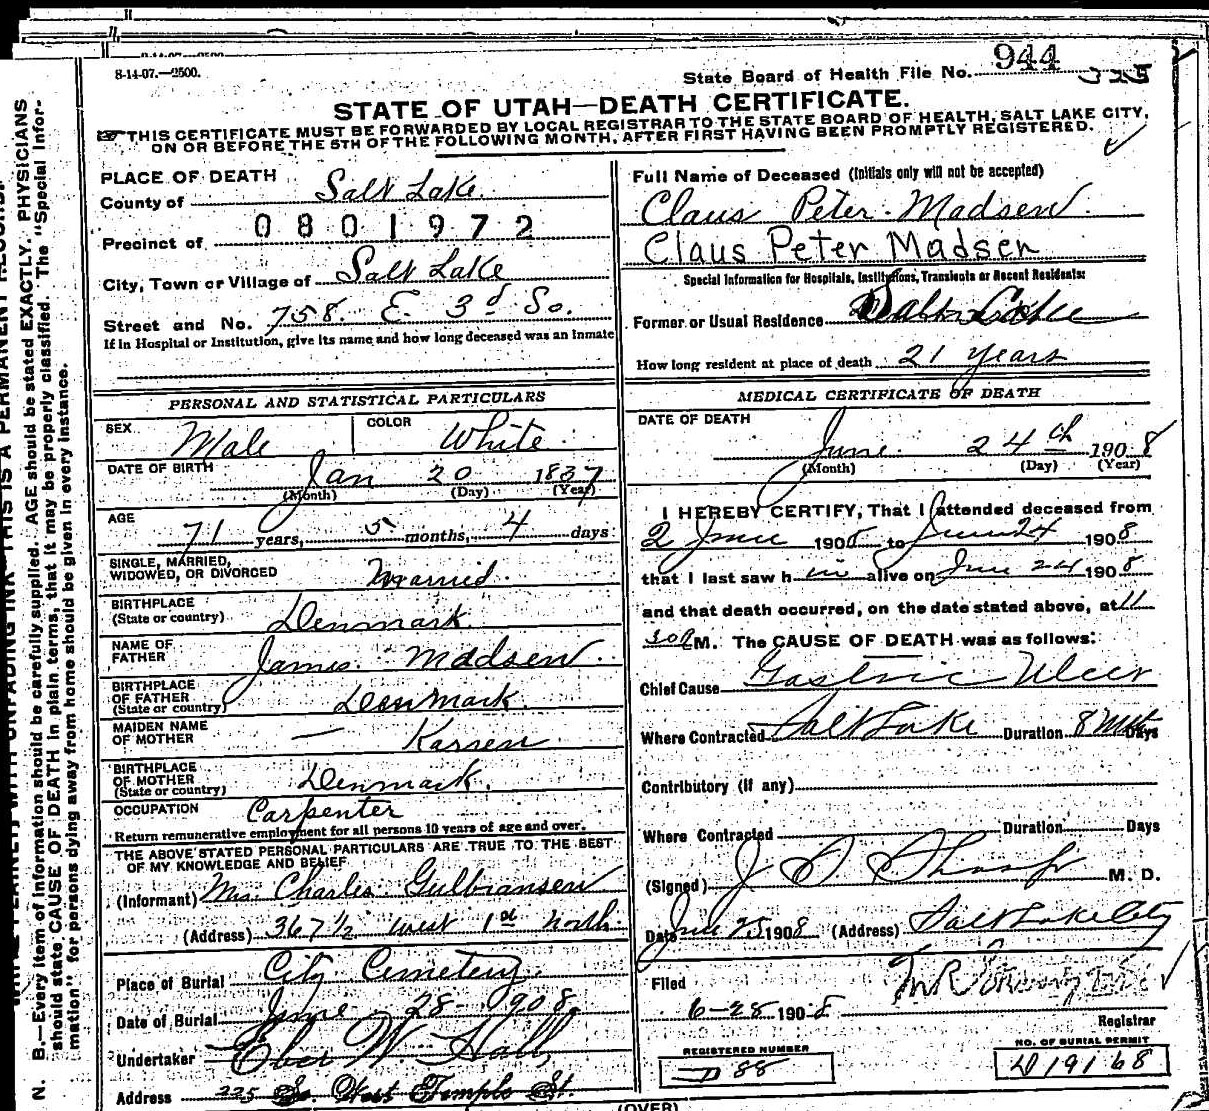 8-14-07.—2500.
State Board of Health File No. 944
325
STATE OF UTAH—DEATH CERTIFICATE.
THIS CERTIFICATE MUST BE FORWARDED BY LOCAL REGISTRAR TO THE STATE BOARD OF HEALTH, SALT LAKE CITY,
ON OR BEFORE THE 5TH OF THE FOLLOWING MONTH, AFTER FIRST HAVING BEEN PROMPTLY REGISTERED.
PLACE OF DEATH
County of Salt Lake.
0801972
Precinct of
City, Town or Village of Salt Lake
Street and No. 758. E. 3d So.
If in Hospital or Institution, give its name and how long deceased was an Inmate
PERSONAL AND STATISTICAL PARTICULARS
SEX Male COLOR White
DATE OF BIRTH Jan 20 1837
(Month) (Day) (Year)
AGE
71 years, 5 months, 4 days
SINGLE, MARRIED,
WIDOWED, OR DIVORCED Married.
BIRTHPLACE
(State or country) Denmark.
NAME OF
FATHER James Madsen.
BIRTHPLACE
OF FATHER
(State or country) Denmark.
MAIDEN NAME
OF MOTHER — Karren
BIRTHPLACE
OF MOTHER
(State or country) Denmark.
OCCUPATION Carpenter
Return remunerative employment for all persons 10 years of age and over.
THE ABOVE STATED PERSONAL PARTICULARS ARE TRUE TO THE BEST
OF MY KNOWLEDGE AND BELIEF
(Informant) Mrs. Charles Gulbransen
(Address) 367 1/2 West 1st North
Place of Burial City Cemetery.
Date of Burial June 28 1908,
Undertaker Eber W. Hall,
Address 225 So. West Temple St.
Full Name of Deceased (Initials only will not be accepted)
Claus Peter Madsen.
Claus Peter Madsen
Special Information for Hospitals, Institutions, Transients or Recent Residents:
Former or Usual Residence Salt Lake
How long resident at place of death 21 years
MEDICAL CERTIFICATE OF DEATH
DATE OF DEATH
June 24th 1908
(Month) (Day) (Year)
I HEREBY CERTIFY, That I attended deceased from
2 June 1908 to June 24 1908
that I last saw him alive on June 24 1908
and that death occurred, on the date stated above, at 11
30 P M. The CAUSE OF DEATH was as follows:
Chief Cause Gastric Ulcer
Where Contracted Salt Lake Duration 8 Days
Contributory (If any)
Where Contracted Duration Days
(Signed) J. M. D.
Date June 25 1908 (Address) Salt Lake City
Filed
6-28-1908
Registrar
REGISTERED NUMBER
D 88
NO. OF BURIAL PERMIT
D19168
(OVER)
N. B.—Every item of information should be carefully supplied. AGE should be stated EXACTLY. PHYSICIANS
should state CAUSE OF DEATH in plain terms, that it may be properly classified. The "Special Infor-
mation" for persons dying away from home should be given in every instance.